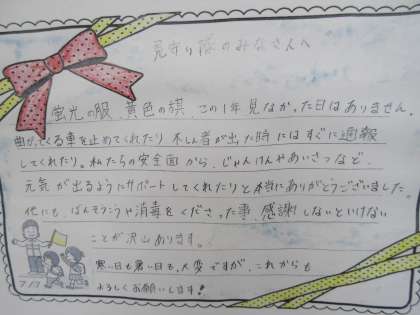 見守り隊のみなさんへ
蛍光の服、黄色の旗、この1年見なかった日はありません。
曲がってくる車を止めてくれたり 不しん者が出た時にはすぐに通報
してくれたり。私たちの安全面から、じゃんけんやあいさつなど、
元気が出るようにサポートしてくれたりと本当にありがとうございました。
他にも、ばんそうこうや消毒をくださった事、感謝しないといけない
ことが沢山あります。
寒い日も暑い日も、大変ですが、これからも
よろしくお願いします!